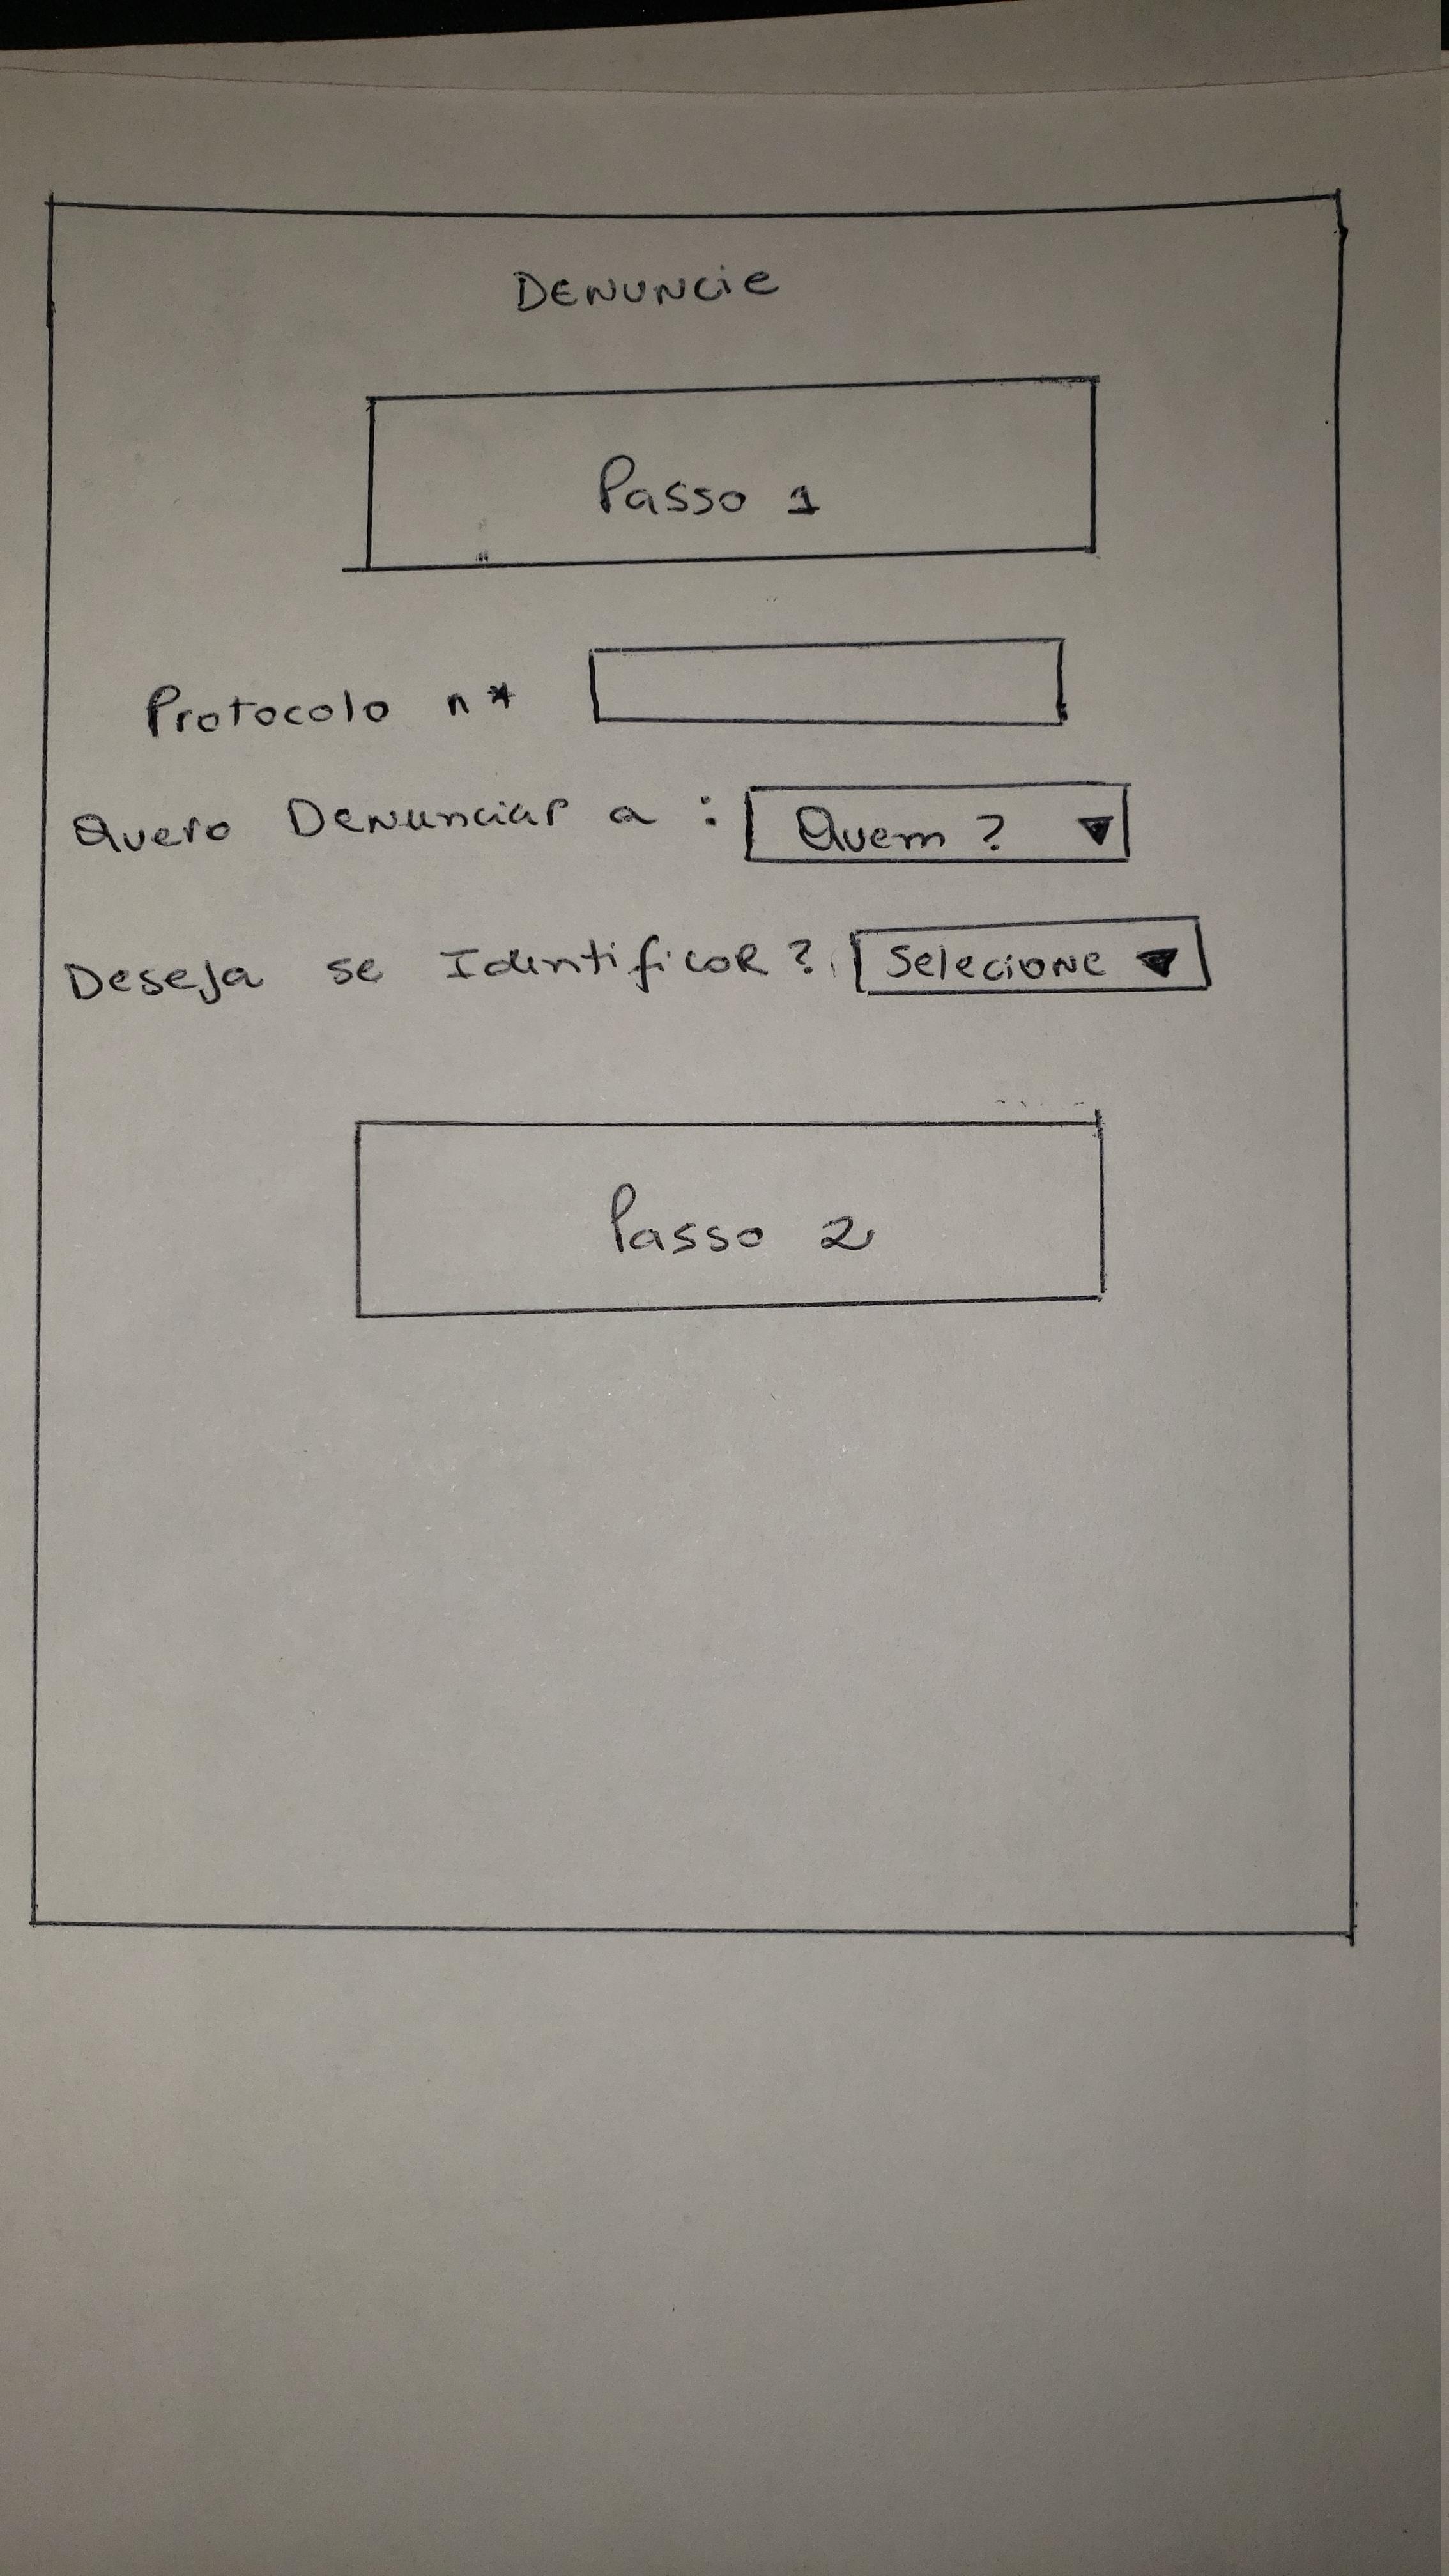 DENUNCIE
Passo 1
Protocolo n*
Quero Denunciar a : Quem ? ▼
Deseja se IdentificaR ? Selecione ▼
Passo 2